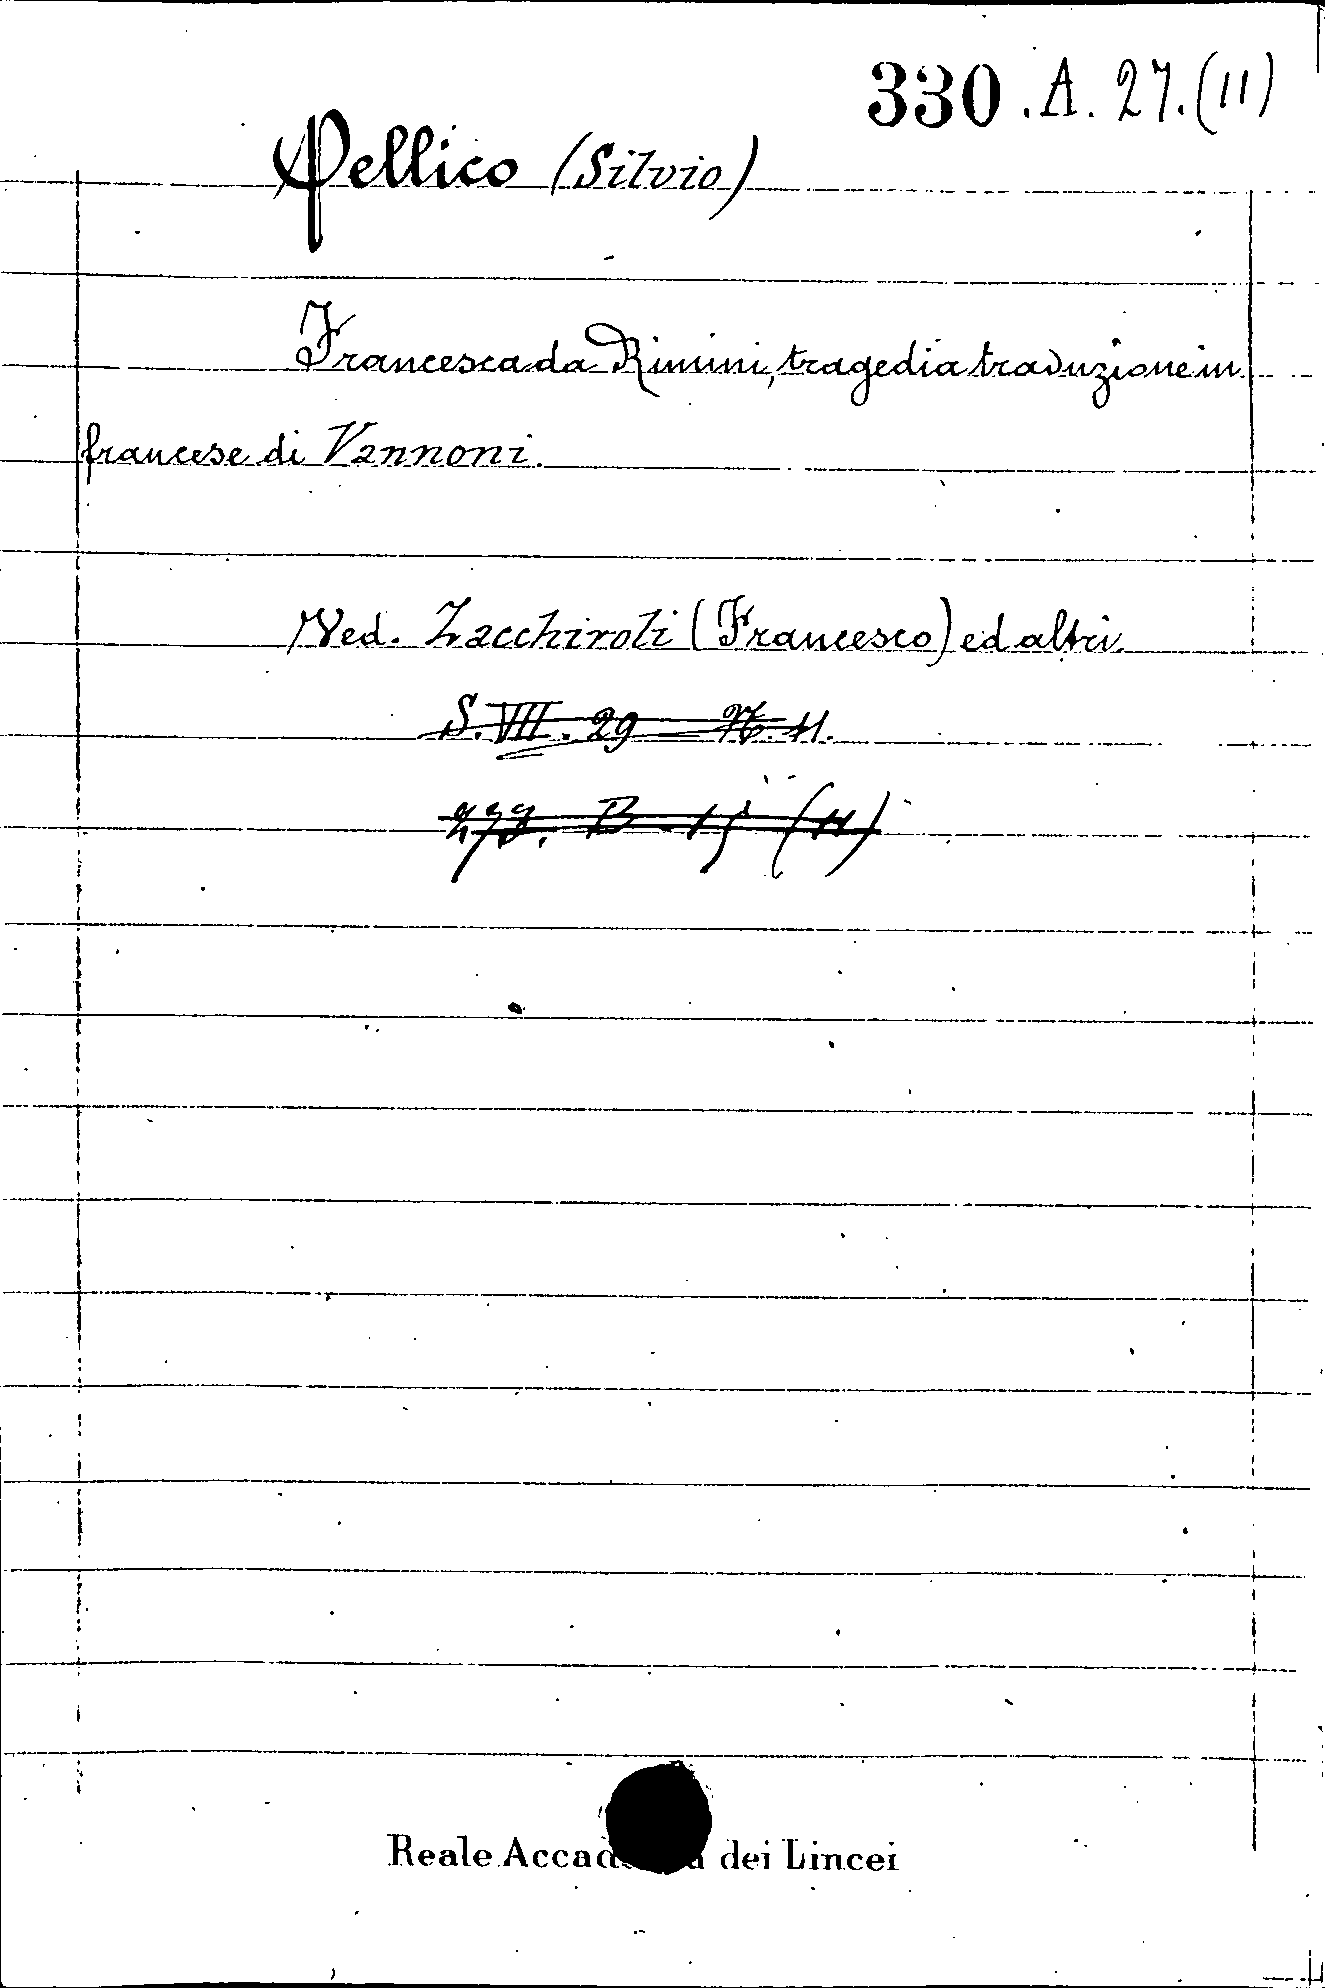 330.A.27.(11)
Pellico (Silvio)
Francesca da Rimini, tragedia traduzione in
francese di Vannoni.
Ved. Zacchiroli (Francesco) ed altri.
S. VII. 29 N. 11.
B 15 (11)
Reale dei Lincei